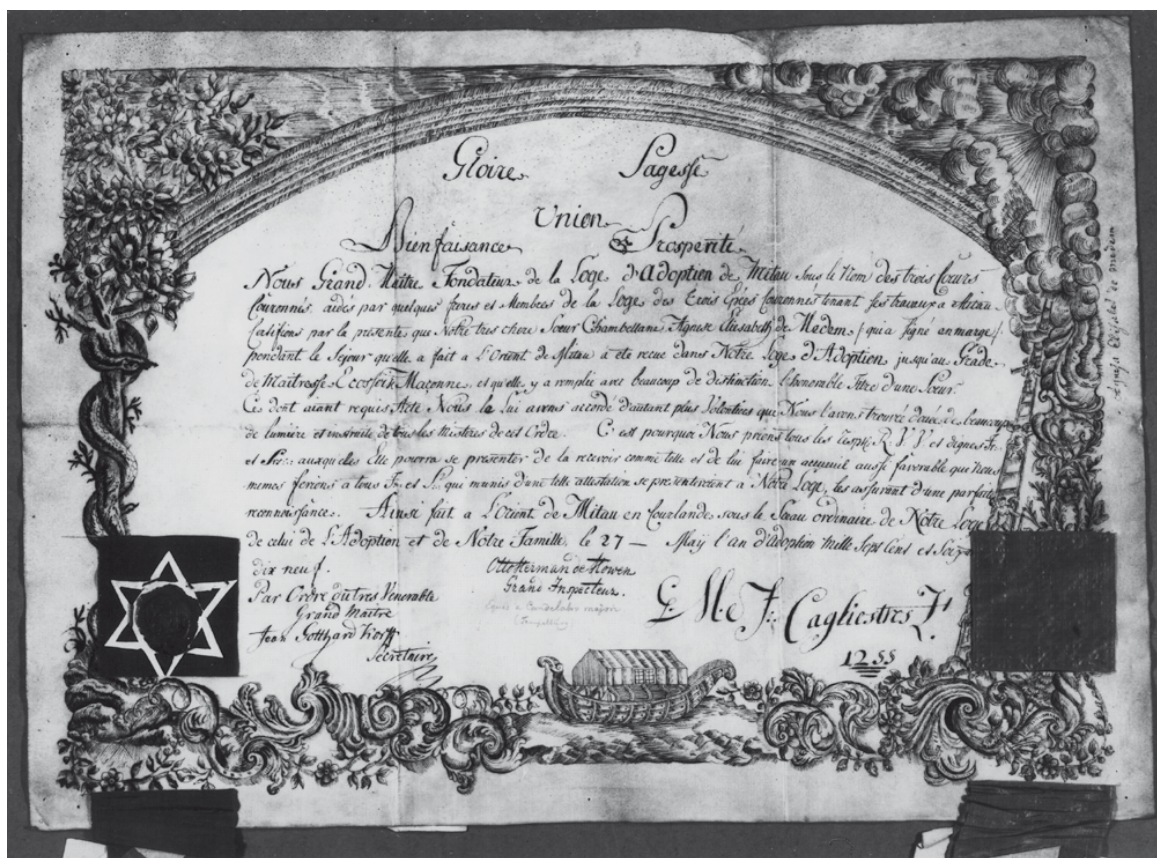 Gloire Sagesse
Union
Bienfaisance & Prosperité
Nous Grand Maître Fondateur de la Loge d'Adoption de Mitau sous le Nom des trois Cœurs
Couronnés aidés par quelques freres et Membres de la Loge des Trois Epées Couronnés tenant ses travaux a Mitau
Certifions par la presente que Notre tres chere Sœur Chambellane Agnese Elisabeth de Medem /: qui a signé en marge :/
pendant le Sejour qu'elle a fait a L'Orient de Mitau a été recue dans Notre Loge d'Adoption jusqu'au Grade
de Maitresse Ecossoise Maçonne, et qu'elle y a remplie avec beaucoup de distinction l'honorable Titre d'une Sœur.
Ce dont aiant requis Acte Nous la lui avons accordé d'autant plus Volontiers que Nous l'avons trouvée douée de beaucoup
de lumière et instruite de tous les misteres de cet Ordre. C'est pourquoi Nous prions tous les R. V. V. et dignes Fr.
et Srs: auxquelles Elle pourra se presenter de la recevoir comme telle et de lui faire un accueil aussi favorable que nous
memes ferions a tous Frs. et Srs. qui munis d'une telle attestation se presenteroient a Notre Loge, les assurant d'une parfaite
reconnoissance. Ainsi fait a L'Orient de Mitau en Courlande sous le Sceau ordinaire de Notre Loge
de celui de L'Adoption et de Notre Famille, le 27 — May l'an d'adoption Mille Sept Cens et Soixante
dix neuf.
Otto Herman de Howen
Grand Inspecteur.
Par Ordre du tres Venerable
Grand Maitre
Jean Gotthard
Secretaire
G. M. e F. Cagliostro F.
1255
Agnesa Elisabet de Medem